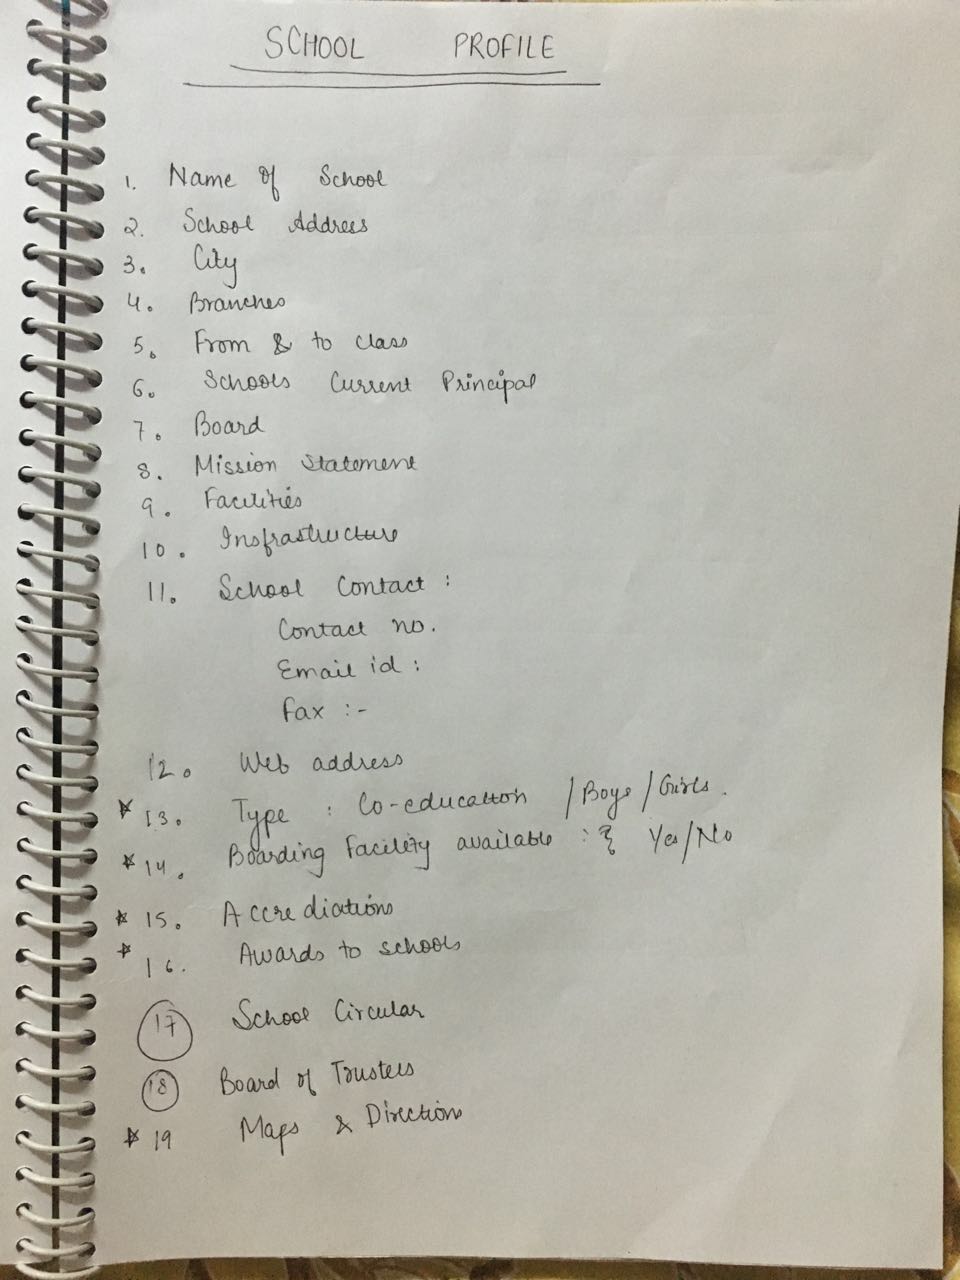 SCHOOL PROFILE
1. Name of School
2. School Address
3. City
4. Branches
5. From & to class
6. Schools Current Principal
7. Board
8. Mission Statement
9. Facilities
10. Insfrastructure
11. School Contact :
Contact no.
Email id :
Fax :-
12. Web address
☆ 13. Type : Co-education / Boys / Girls.
☆ 14. Boarding Facility available : Yes/No
☆ 15. Accrediations
☆ 16. Awards to schools
17 School Circular
18 Board of Trustees
☆ 19 Maps & Directions